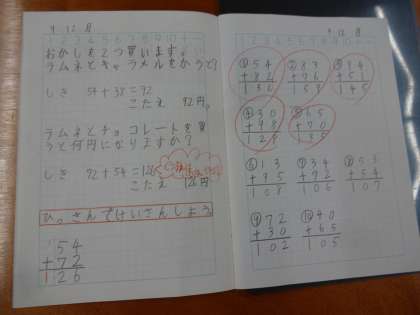 9.12 月
おかしを2つ買います。
ラムネとキャラメルをかうと?
しき 54+38=92
こたえ 92円
ラムネとチョコレートを買
うと何円になりますか?
しき 92+54=126
こたえ 126円
ひっさんでけいさんしよう。
54
+72
126
9.12 月
① 54
+82
136
② 83
+76
159
③ 94
+51
145
④ 30
+98
128
⑤ 65
+70
135
⑥ 13
+95
108
⑦ 34
+72
106
⑧ 53
+54
107
⑨ 72
+30
102
⑩ 40
+65
105